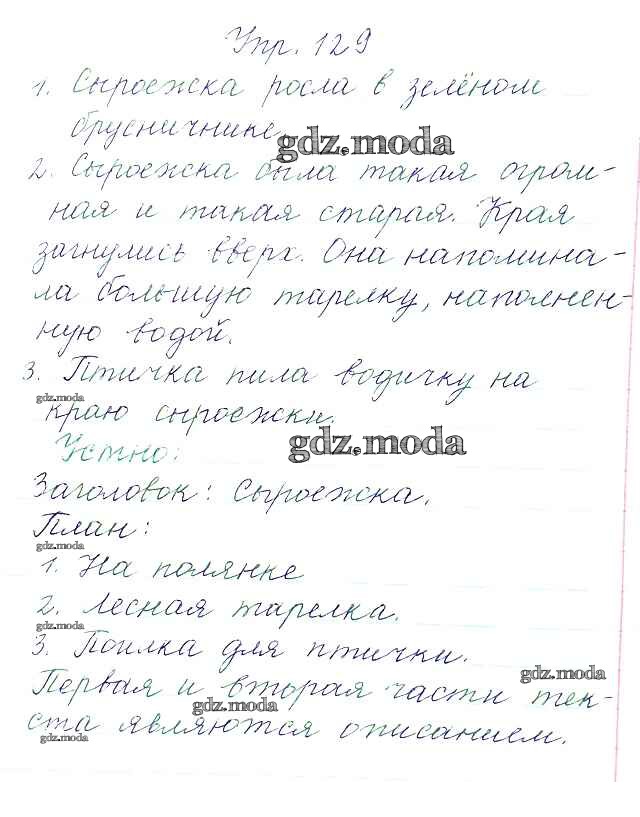 Упр. 129
1. Сыроежка росла в зелёном
брусничнике.
gdz.moda
2. Сыроежка была такая огром-
ная и такая старая. Края
загнулись вверх. Она напомина-
ла большую тарелку, наполнен-
ную водой.
3. Птичка пила водичку на
gdz.moda
краю сыроежки.
Устно:
gdz.moda
Заголовок: Сыроежка.
План:
gdz.moda
1. На полянке
2. Лесная тарелка.
gdz.moda
3. Поилка для птички.
gdz.moda
Первая и вторая части тек-
gdz.moda
ста являются описанием.
gdz.moda